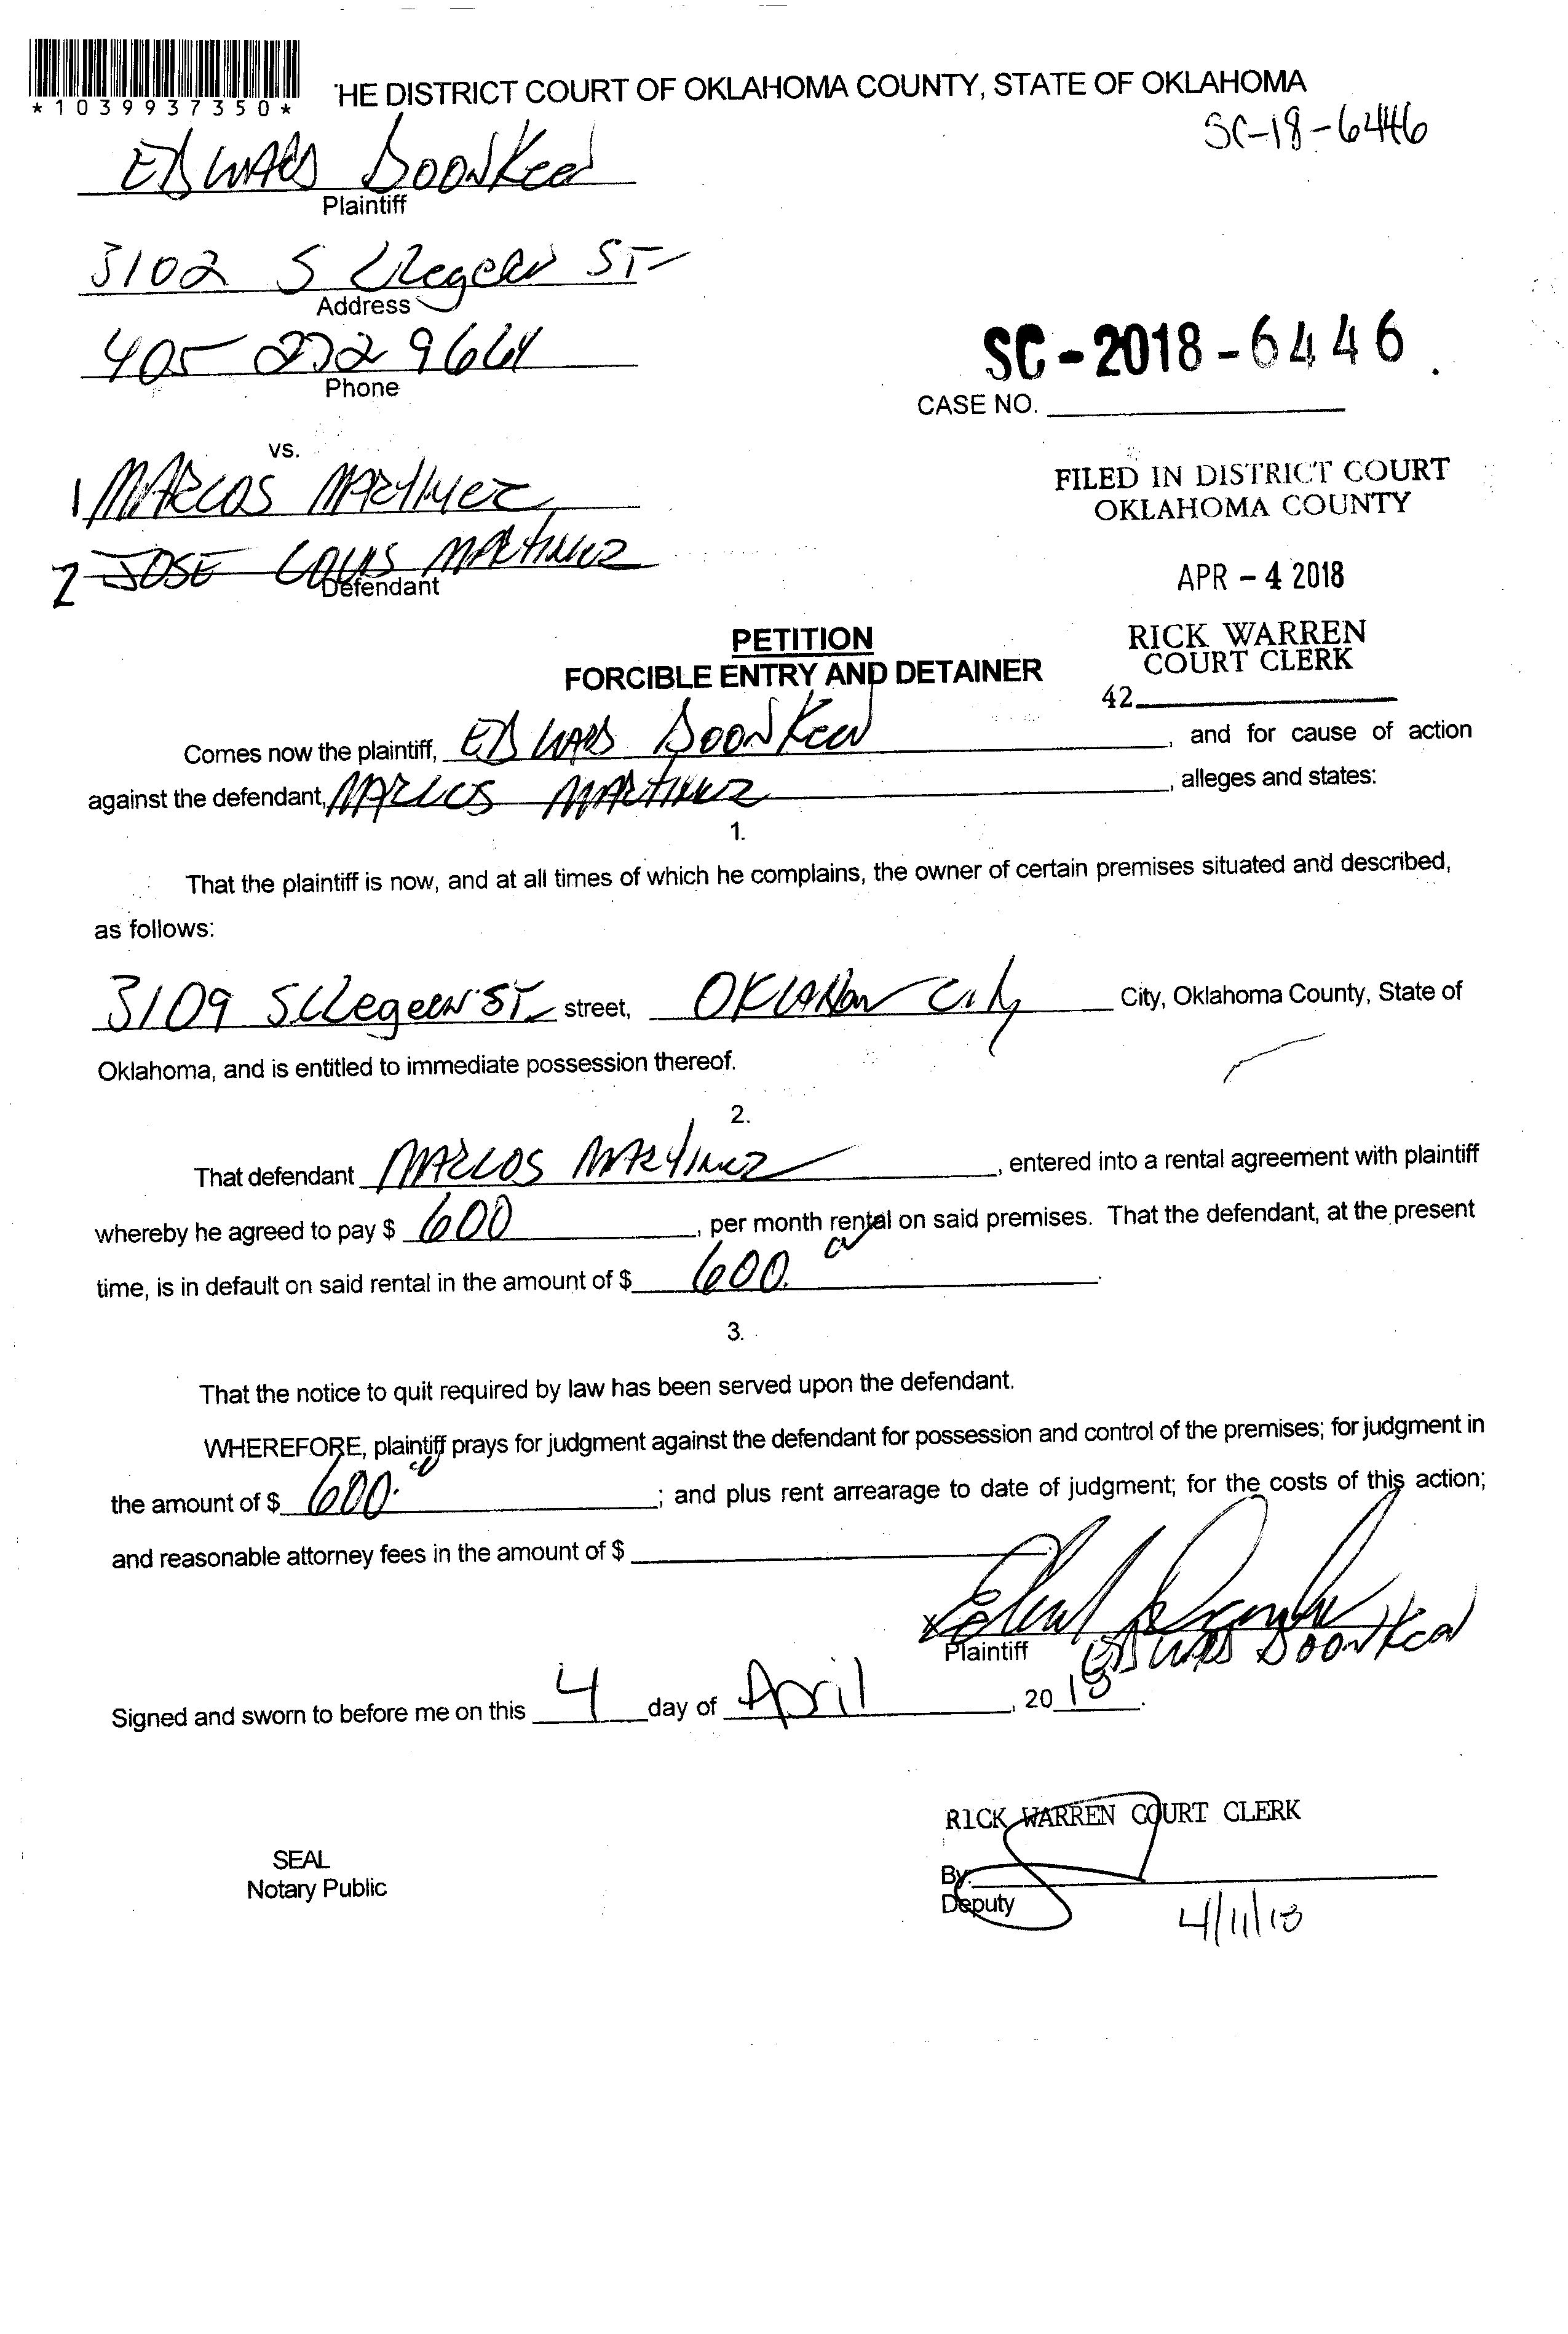 *1039937350*
HE DISTRICT COURT OF OKLAHOMA COUNTY, STATE OF OKLAHOMA
SC-18-6446
EDWARD DOONKEEN
Plaintiff
3102 S ST
Address
405 272 9664
Phone
SC-2018-6446.
CASE NO.
vs.
1 MARCOS MARTINEZ
FILED IN DISTRICT COURT
OKLAHOMA COUNTY
2 JOSE LOUIS MARTINEZ
Defendant
APR - 4 2018
PETITION
FORCIBLE ENTRY AND DETAINER
RICK WARREN
COURT CLERK
42
Comes now the plaintiff, EDWARD DOONKEEN, and for cause of action
against the defendant, MARCOS MARTINEZ, alleges and states:
1.
That the plaintiff is now, and at all times of which he complains, the owner of certain premises situated and described,
as follows:
3109 S ST street, City City, Oklahoma County, State of
Oklahoma, and is entitled to immediate possession thereof.
2.
That defendant MARCOS MARTINEZ, entered into a rental agreement with plaintiff
whereby he agreed to pay $ 600, per month rental on said premises. That the defendant, at the present
time, is in default on said rental in the amount of $ 600.
3.
That the notice to quit required by law has been served upon the defendant.
WHEREFORE, plaintiff prays for judgment against the defendant for possession and control of the premises; for judgment in
the amount of $ 600.; and plus rent arrearage to date of judgment; for the costs of this action;
and reasonable attorney fees in the amount of $
X
Plaintiff EDWARD DOONKEEN
Signed and sworn to before me on this 4 day of April, 2018.
RICK WARREN COURT CLERK
SEAL
Notary Public
By:
Deputy
4/11/18